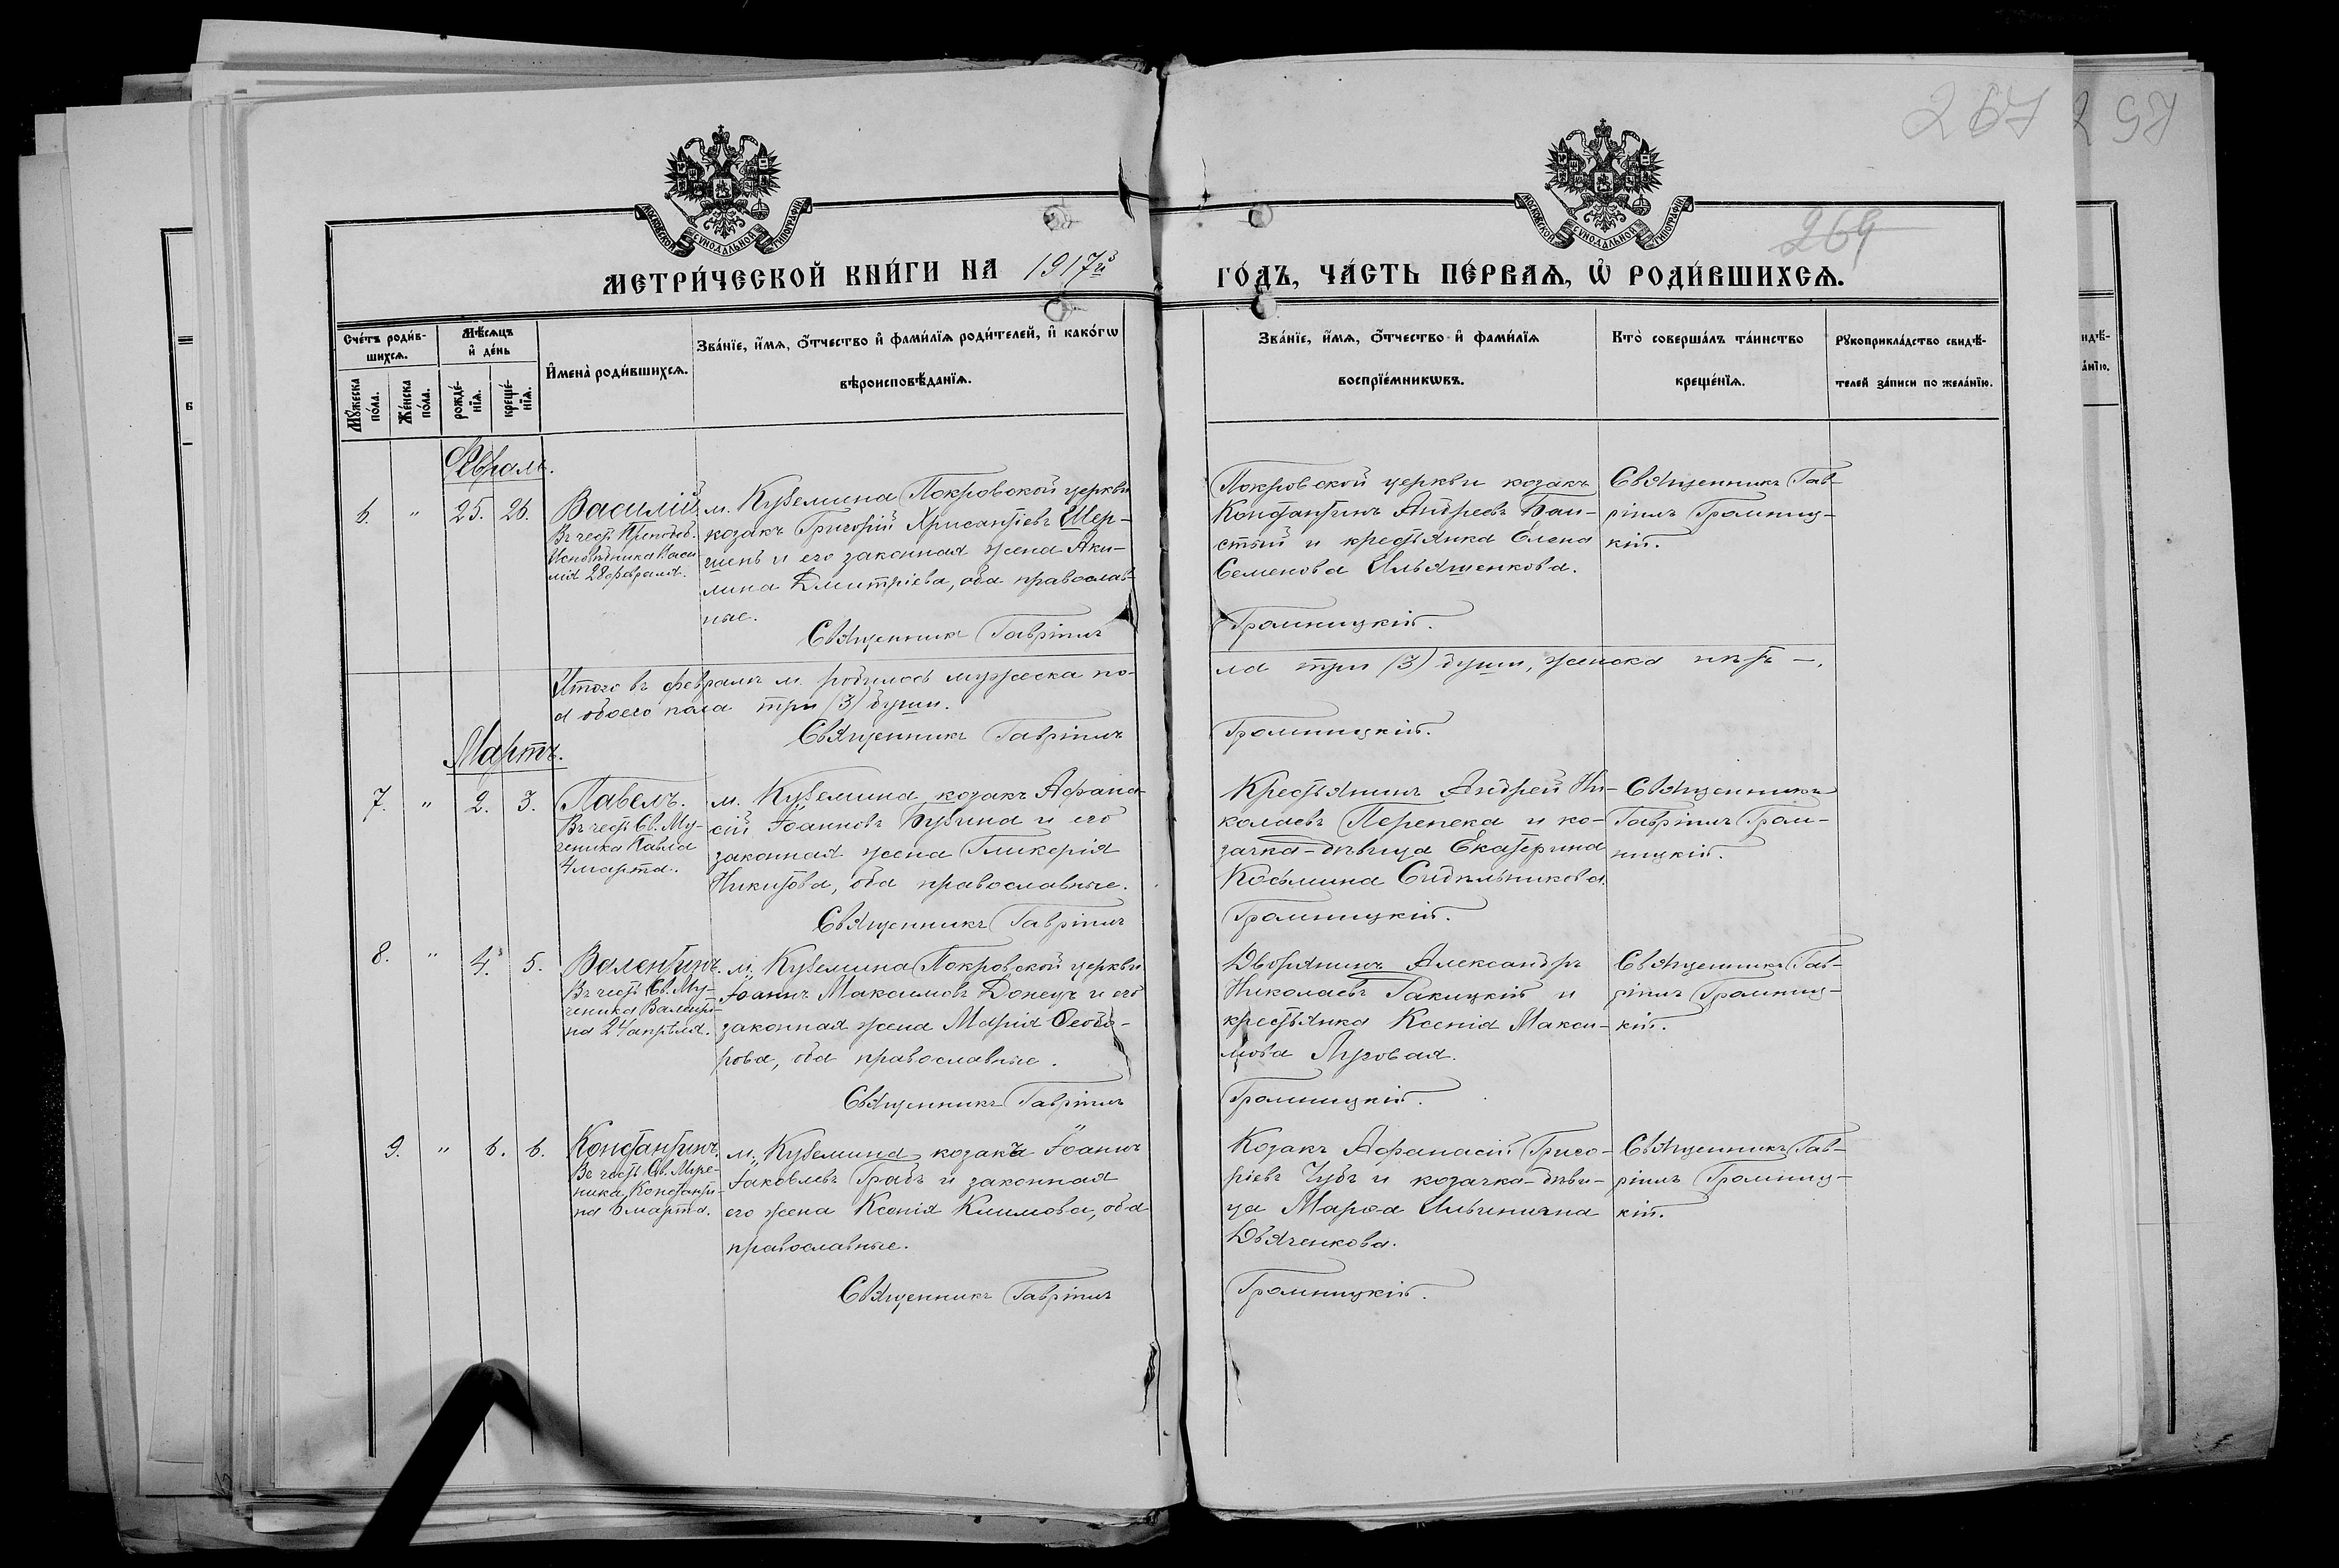 267
257
269
МОСКОВСКОЙ СѴНОДАЛЬНОЙ ТИПОГРАФІИ
МОСКОВСКОЙ СѴНОДАЛЬНОЙ ТИПОГРАФІИ
МЕТРИ́ЧЕСКОЙ КНИ́ГИ НА 1917й
ГО́ДЪ, ЧА́СТЬ ПЕ́РВАѦ, Ѡ҆ РОДИ́ВШИХСѦ.
Сче́тъ роди́в-
шихсѧ.
Мꙋ́жеска по́ла.
Же́нска по́ла.
Мѣ́сѧцъ
и҆ де́нь
рожде́-
нїѧ.
креще́-
нїѧ.
И҆мена̀ роди́вшихсѧ.
Зва́нїе, и҆́мѧ, ѻ҆́тчество и҆ фами́лїѧ роди́телей, и҆ како́гѡ
вѣроисповѣ́данїѧ.
Зва́нїе, и҆́мѧ, ѻ҆́тчество и҆ фами́лїѧ
воспрїе́мникѡвъ.
Кто̀ соверша́лъ та́инство
креще́нїѧ.
Рꙋкоприкла́дство свидѣ́-
телей за́писи по жела́нїю.
Февраль.
6. " 25. 26. Василій
Въ честь Преподоб.
Исповѣдника Васи-
лія 28 февраля.
м. Куземина Покровской церкви
козакъ Григорій Хрисанѳіевъ Шер-
шень и его законная жена Аки-
лина Дмитріева, оба православ-
ные.
Священникъ Гавріилъ
Покровской церкви козакъ
Константинъ Андреевъ
и крестьянка Елена
Семенова Ильяшенкова.
Громницкій.
Священникъ Гав-
ріилъ Громниц-
кій.
Итого въ февралѣ м. родилось мужеска по-
ла три (3) души, женска нѣтъ —,
а обоего пола три (3) души.
Священникъ Гавріилъ
Громницкій.
Мартъ.
7. " 2. 3. Павелъ.
Въ честь Св. Му-
ченика Павла
4 марта.
м. Куземина козакъ Аѳана-
сій Іоанновъ Бузина и его
законная жена Гликерія
Никитова, оба православные.
Священникъ Гавріилъ
Крестьянинъ Андрей Ни-
колаевъ Перепека и ко-
зачка-дѣвица Екатерина
Косьмина Сидѣльникова.
Громницкій.
Священникъ
Гавріилъ Гром-
ницкій.
8. " 4. 5. Валентинъ.
Въ честь Св. Му-
ченика Валенти-
на 24 апрѣля.
м. Куземина Покровской церкви
Іоаннъ Максимовъ Донецъ и его
законная жена Марія Ѳеодо-
рова, оба православные.
Священникъ Гавріилъ
Дворянинъ Александръ
Николаевъ Ракицкій и
крестьянка Ксенія Макси-
мова Луговая.
Громницкій.
Священникъ Гав-
ріилъ Громниц-
кій.
9. " 6. 6. Константинъ.
Въ честь Св. Муче-
ника Константи-
на 6 марта.
м. Куземина козакъ Іоаннъ
Іаковлевъ Грабъ и законная
его жена Ксенія Климова, оба
православные.
Священникъ Гавріилъ
Козакъ Аѳанасій Григо-
ріевъ Чубъ и козачка-дѣви-
ца Марѳа Ильинична
Дьяченкова.
Громницкій.
Священникъ Гав-
ріилъ Громниц-
кій.